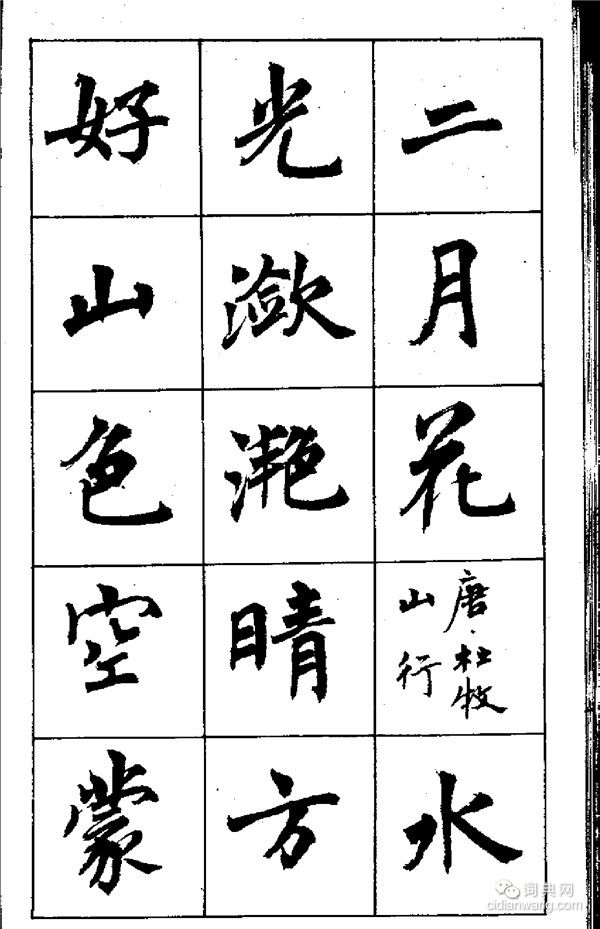 二月花
唐·杜牧
山行
水
光潋滟晴方
好山色空蒙
词典网
cidianwang.com